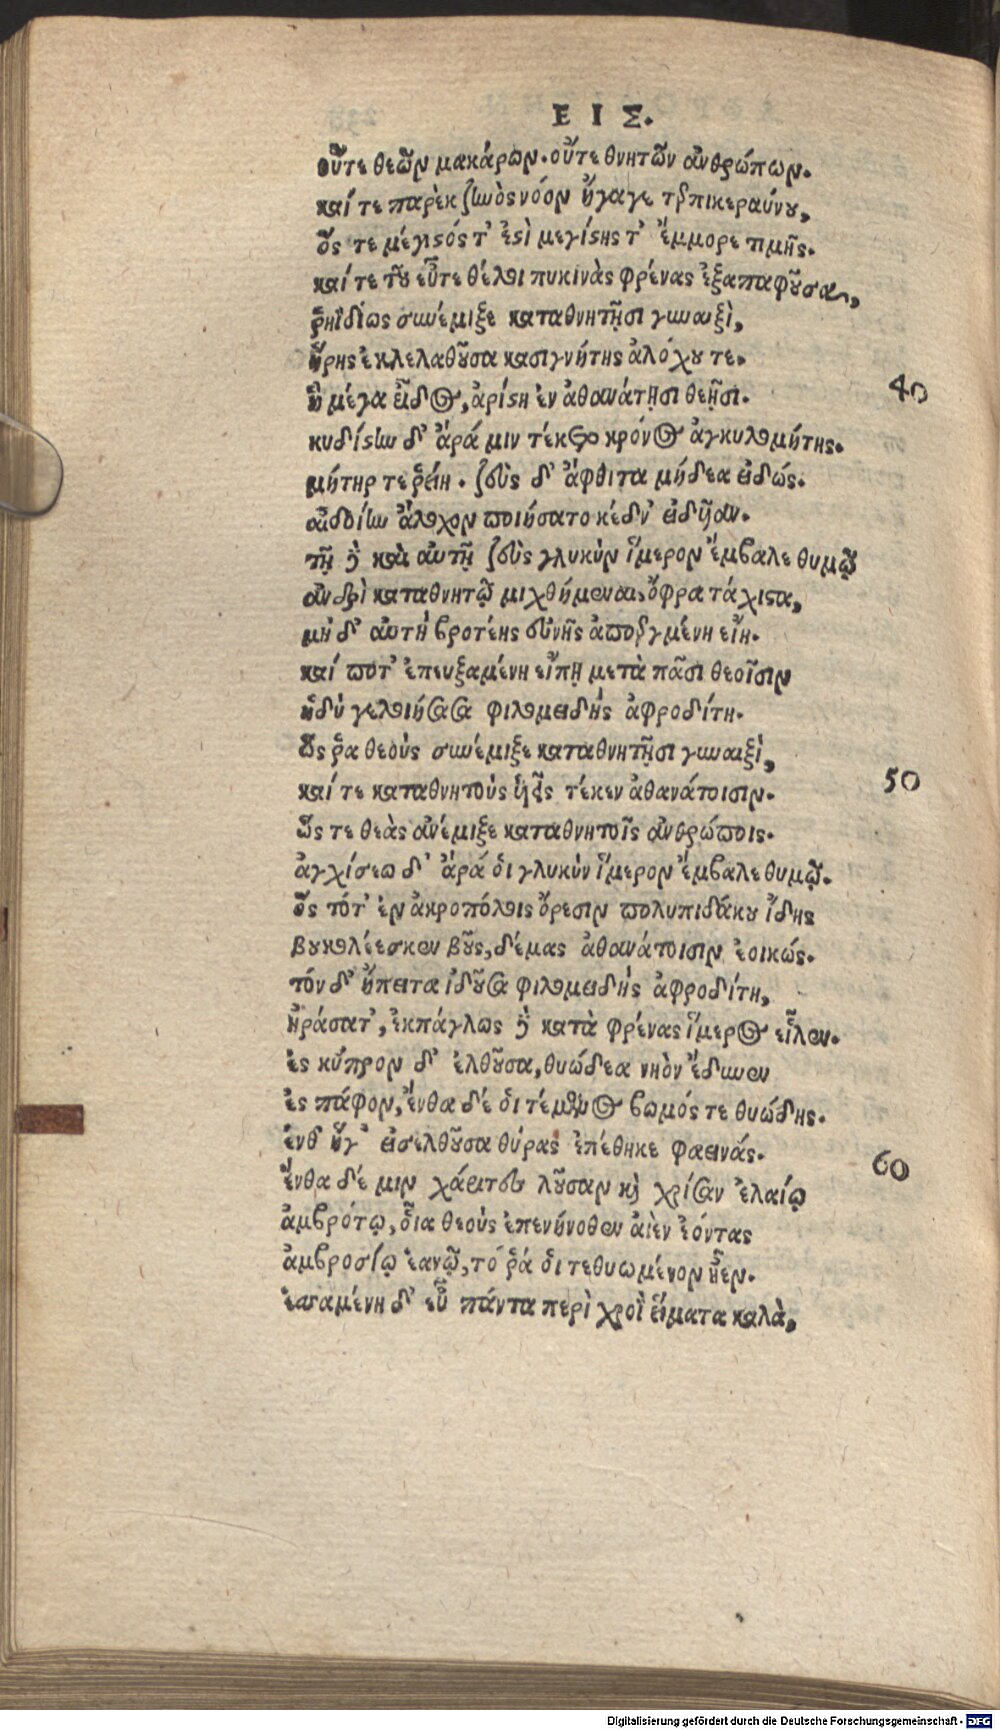 ΕΙΣ.
οὔτε θεῶν μακάρων. οὔτε θνητῶν ἀνθρώπων.
καί τε παρὲκ ζηνὸς νόον ἤγαγε τερπικεραύνου,
ὅς τε μέγιστός τ' ἐστὶ μεγίστης τ' ἔμμορε τιμῆς.
καί τε τοῦ εὖτε θέλοι πυκινὰς φρένας ἐξαπαφοῦσα,
ῥηϊδίως συνέμιξε καταθνητῇσι γυναιξὶ,
ἥρης ἐκλελαθοῦσα κασιγνήτης ἀλόχου τε.
ἣ μέγα εἶδος, ἀρίστη ἐν ἀθανάτῃσι θεῇσι. 40
κυδίστην δ' ἄρά μιν τέκετο κρόνος ἀγκυλομήτης.
μήτηρ τε ῥείη. ζεὺς δ' ἄφθιτα μήδεα εἰδώς.
αἰδοίην ἄλοχον ποιήσατο κέδν' εἰδυῖαν.
τῇ δὲ καὶ αὐτῇ ζεὺς γλυκὺν ἵμερον ἔμβαλε θυμῷ
ἀνδρὶ καταθνητῷ μιχθήμεναι, ὄφρα τάχιστα,
μὴ δ' αὐτὴ βροτέης εὐνῆς ἀποεργμένη εἴη.
καί ποτ' ἐπευξαμένη εἴπῃ μετὰ πᾶσι θεοῖσιν
ἡδὺ γελοιήσασα φιλομειδὴς ἀφροδίτη.
ὥς ῥα θεοὺς συνέμιξε καταθνητῇσι γυναιξὶ,
καί τε καταθνητοὺς υἱεῖς τέκεν ἀθανάτοισιν. 50
ὥς τε θεὰς ἀνέμιξε καταθνητοῖς ἀνθρώποις.
ἀγχίσεω δ' ἄρά οἱ γλυκὺν ἵμερον ἔμβαλε θυμῷ.
ὃς τότ' ἐν ἀκροπόλοις ὄρεσιν πολυπιδάκου ἴδης
βουκολέεσκεν βοῦς, δέμας ἀθανάτοισιν ἐοικώς.
τὸν δ' ἤπειτα ἰδοῦσα φιλομειδὴς ἀφροδίτη,
ἠράσατ', ἐκπάγλως δὲ κατὰ φρένας ἵμερος εἷλεν.
ἐς κύπρον δ' ἐλθοῦσα, θυώδεα νηὸν ἔδυνεν
ἐς πάφον, ἔνθα δέ οἱ τέμενος βωμός τε θυώδης.
ἔνθ' ἥγ' εἰσελθοῦσα θύρας ἐπέθηκε φαεινάς. 60
ἔνθα δέ μιν χάριτες λοῦσαν καὶ χρίσαν ἐλαίῳ
ἀμβρότῳ, οἷα θεοὺς ἐπενήνοθεν αἰὲν ἐόντας
ἀμβροσίῳ ἑανῷ, τό ῥά οἱ τεθυωμένον ἦεν.
ἑσσαμένη δ' εὖ πάντα περὶ χροῒ εἵματα καλὰ,
Digitalisierung gefördert durch die Deutsche Forschungsgemeinschaft - DFG